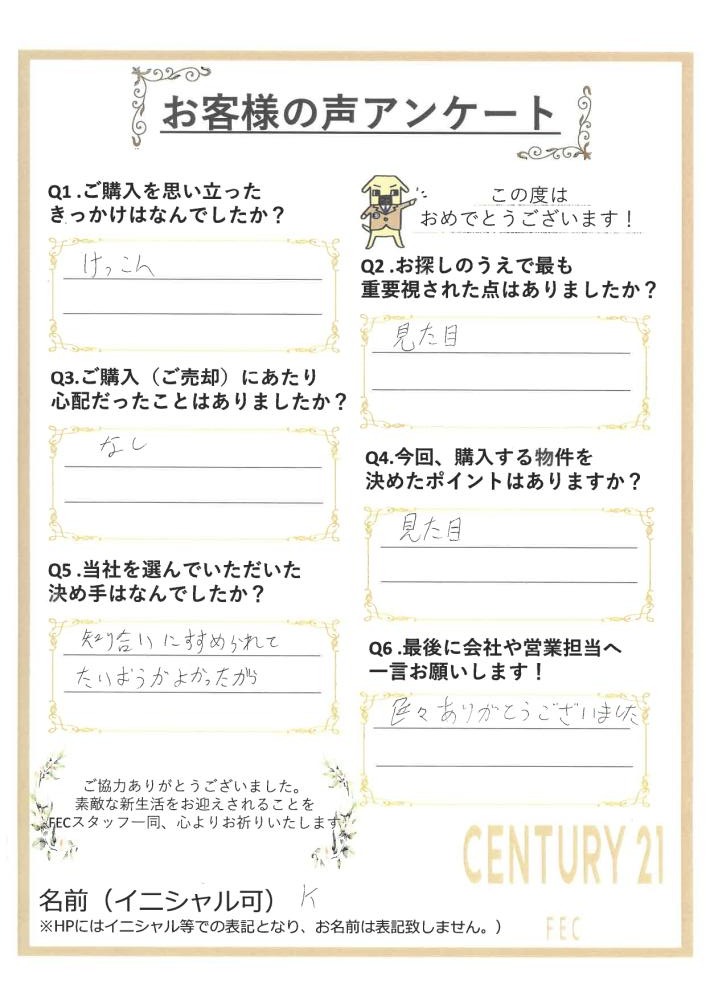 お客様の声アンケート
Q1.ご購入を思い立った
きっかけはなんでしたか？
けっこん
この度は
おめでとうございます！
Q2.お探しのうえで最も
重要視された点はありましたか？
見た目
Q3.ご購入（ご売却）にあたり
心配だったことはありましたか？
なし
Q4.今回、購入する物件を
決めたポイントはありますか？
見た目
Q5.当社を選んでいただいた
決め手はなんでしたか？
知り合いにすすめられて
たいおうがよかったから
Q6.最後に会社や営業担当へ
一言お願いします！
色々ありがとうございました
ご協力ありがとうございました。
素敵な新生活をお迎えされることを
FECスタッフ一同、心よりお祈りいたします
CENTURY 21
FEC
名前（イニシャル可） K
※HPにはイニシャル等での表記となり、お名前は表記致しません。）